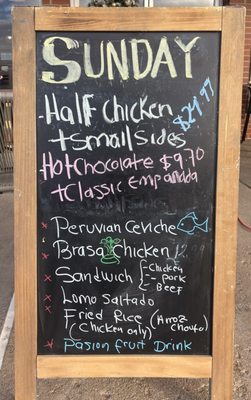 SUNDAY
Half Chicken
+ Small Sides
$24.97
Hot Chocolate $9.70
+ Classic Empanada
* Peruvian Ceviche
* Brasa Chicken
* Sandwich - Chicken
- Pork
- Beef
* Lomo Saltado
* Fried Rice (Arroz
(Chicken only) chaufa)
* Pasion fruit Drink